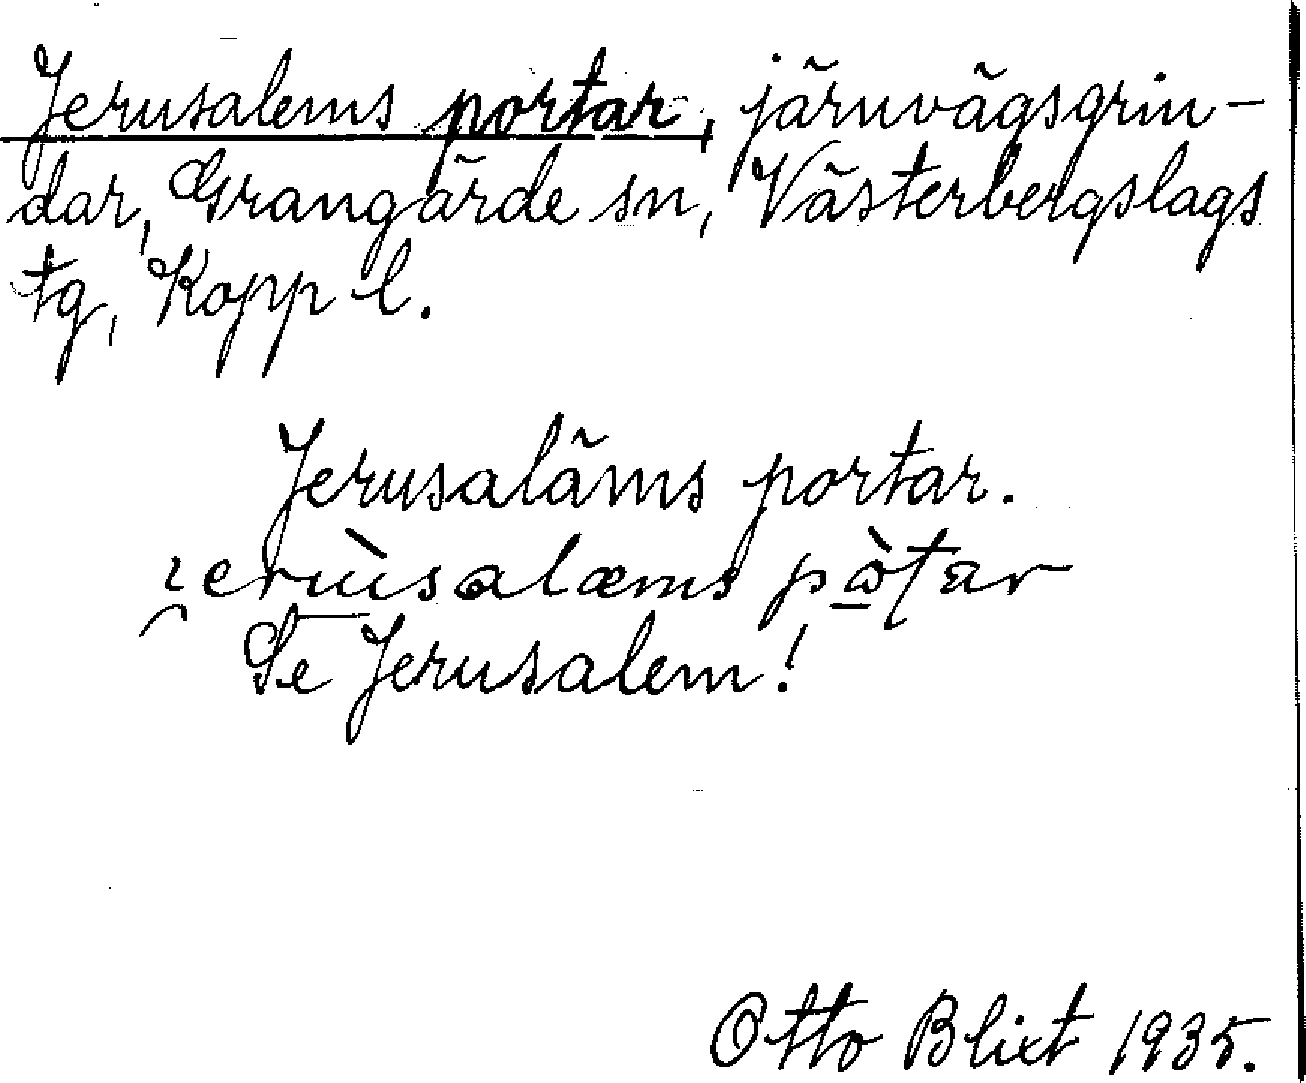 Jerusalems portar, järnvägsgrin-
dar, Grangärde sn, Västerbergslags
tg, Kopp l.
Jerusaläms portar.
Se Jerusalem!
Otto Blixt 1935.